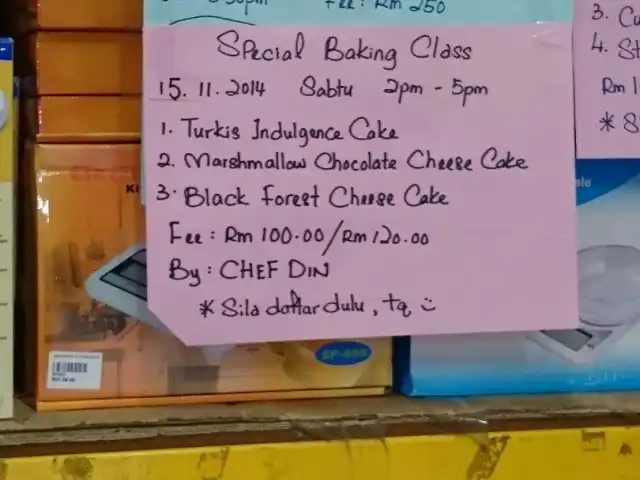 Fee: Rm 250
Special Baking Class
15.11.2014 Sabtu 2pm - 5pm
1. Turkis Indulgence Cake
2. Marshmallow Chocolate Cheese Cake
3. Black Forest Cheese Cake
Fee: Rm 100.00/Rm 120.00
By: CHEF DIN
* Sila daftar dulu, tq
3. Cu
4. St
Rm 1
* S
EP-400